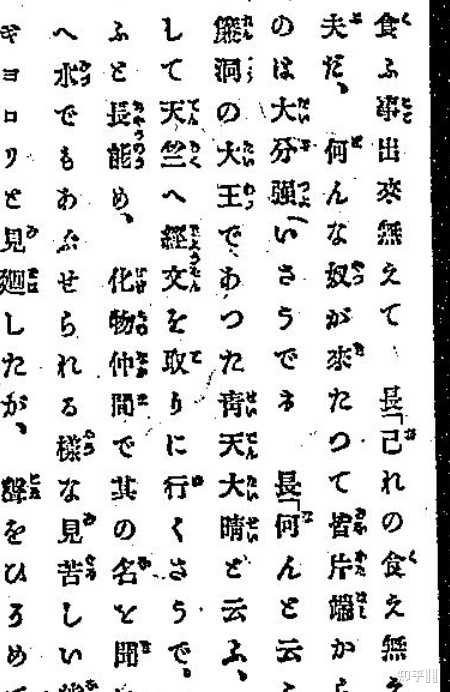 食ふ事出來無えて 長「己れの食え無
夫だ、何んな奴が來たつて皆片端か
のは大分強いさうでネ 長「何んと云
簾洞の大王であつた靑天大晴と云ふ、
して天竺へ經文を取りに行くさうで。
ふと長能め、化物仲間で其の名を聞
へ水でもあぶせられる樣な見苦しい
ギヨロリと見廻したが、聲をひろめ
知乎